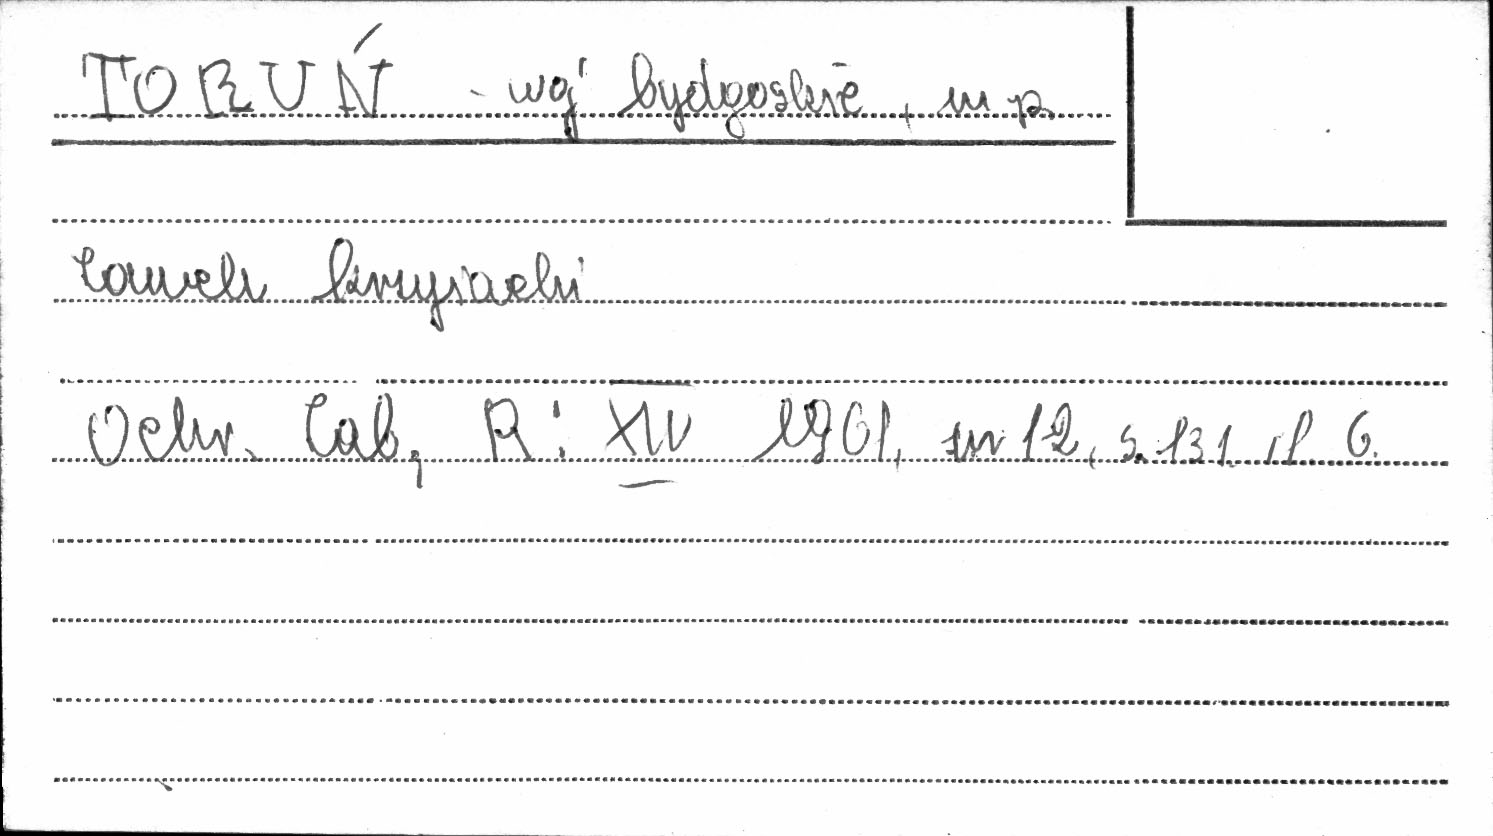 TORUŃ - woj bydgoskie, m p.
Zamek krzyżacki
Ochr. Zab, R: XIV 1961, nr 12, s. 131 il 6.